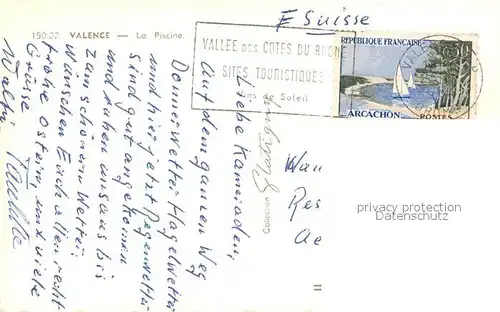 150.22 VALENCE — La Piscine.
F Suisse
VALLEE DES COTES DU RHONE
SITES TOURISTIQUES
Vins de Soleil
REPUBLIQUE FRANÇAISE
0,30
ARCACHON
POSTES
Collection
Liebe Kameraden,
Auf dem ganzen Weg
Donnerwetter Hagelwetter
und hier jetzt Regenwetter
Sind gut angekommen
und ruhen uns aus bis
zum schönen Wetter.
Wünschen Euch allen recht
frohe Ostern, und viele
Grüsse
Walti
privacy protection
Datenschutz